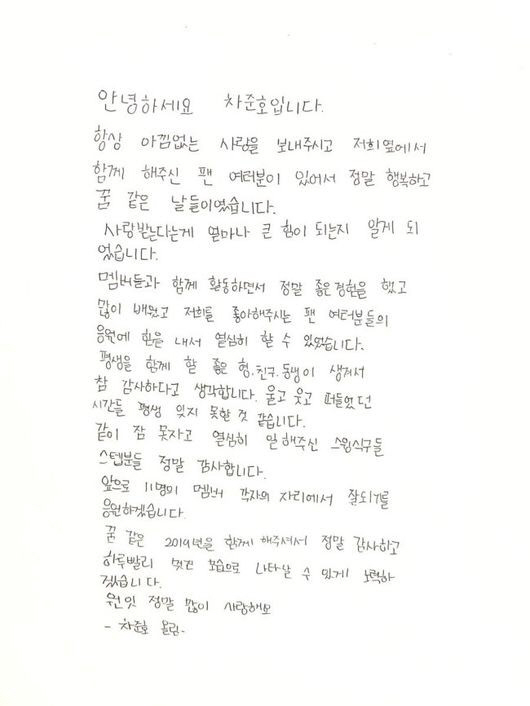 안녕하세요 차준호입니다.
항상 아낌없는 사랑을 보내주시고 저희옆에서
함께 해주신 팬 여러분이 있어서 정말 행복하고
꿈 같은 날들이였습니다.
사랑받는다는게 얼마나 큰 힘이 되는지 알게 되
었습니다.
멤버들과 함께 활동하면서 정말 좋은경험을 했고
많이 배웠고 저희를 좋아해주시는 팬 여러분들의
응원에 힘을 내서 열심히 할 수 있었습니다.
평생을 함께 할 좋은 형,친구,동생이 생겨서
참 감사하다고 생각합니다. 울고 웃고 떠들었던
시간들 평생 잊지 못할 것 같습니다.
같이 잠 못자고 열심히 일해주신 스윙식구들
스텝분들 정말 감사합니다.
앞으로 11명의 멤버 각자의 자리에서 잘되기를
응원하겠습니다.
꿈 같은 2019년을 함께 해주셔서 정말 감사하고
하루빨리 멋진 모습으로 나타날 수 있게 노력하
겠습니다.
원잇 정말 많이 사랑해요
- 차준호 올림-